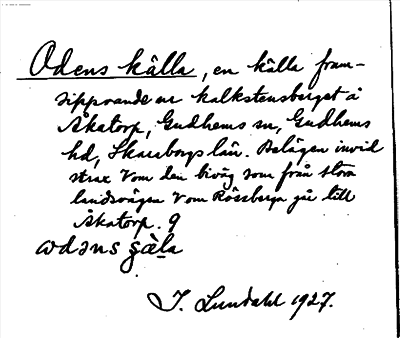 Odens källa, en källa fram-
sipprande ur kalkstensberget å
Åkatorp, Gudhems sn, Gudhems
hd, Skaraborgs län. Belägen invid
strax V om den biväg som från stora
landsvägen V om Rössberga går till
Åkatorp.
J. Lundahl 1927.